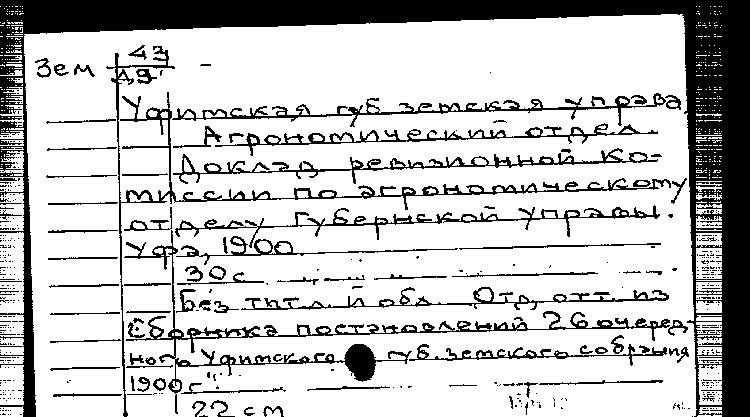 Зем 43
Д9 –
Уфимская губ земская управа
Агрономический отдел.
Доклад ревизионной ко-
миссии по агрономическому
отделу Губернской Управы.
Уфа, 1900.
30 с
Без тит. л. и обл. Отд. отт. из
"Сборника постановлений 26 очеред-
ного Уфимского губ. земского собрания
1900 г."
22 см